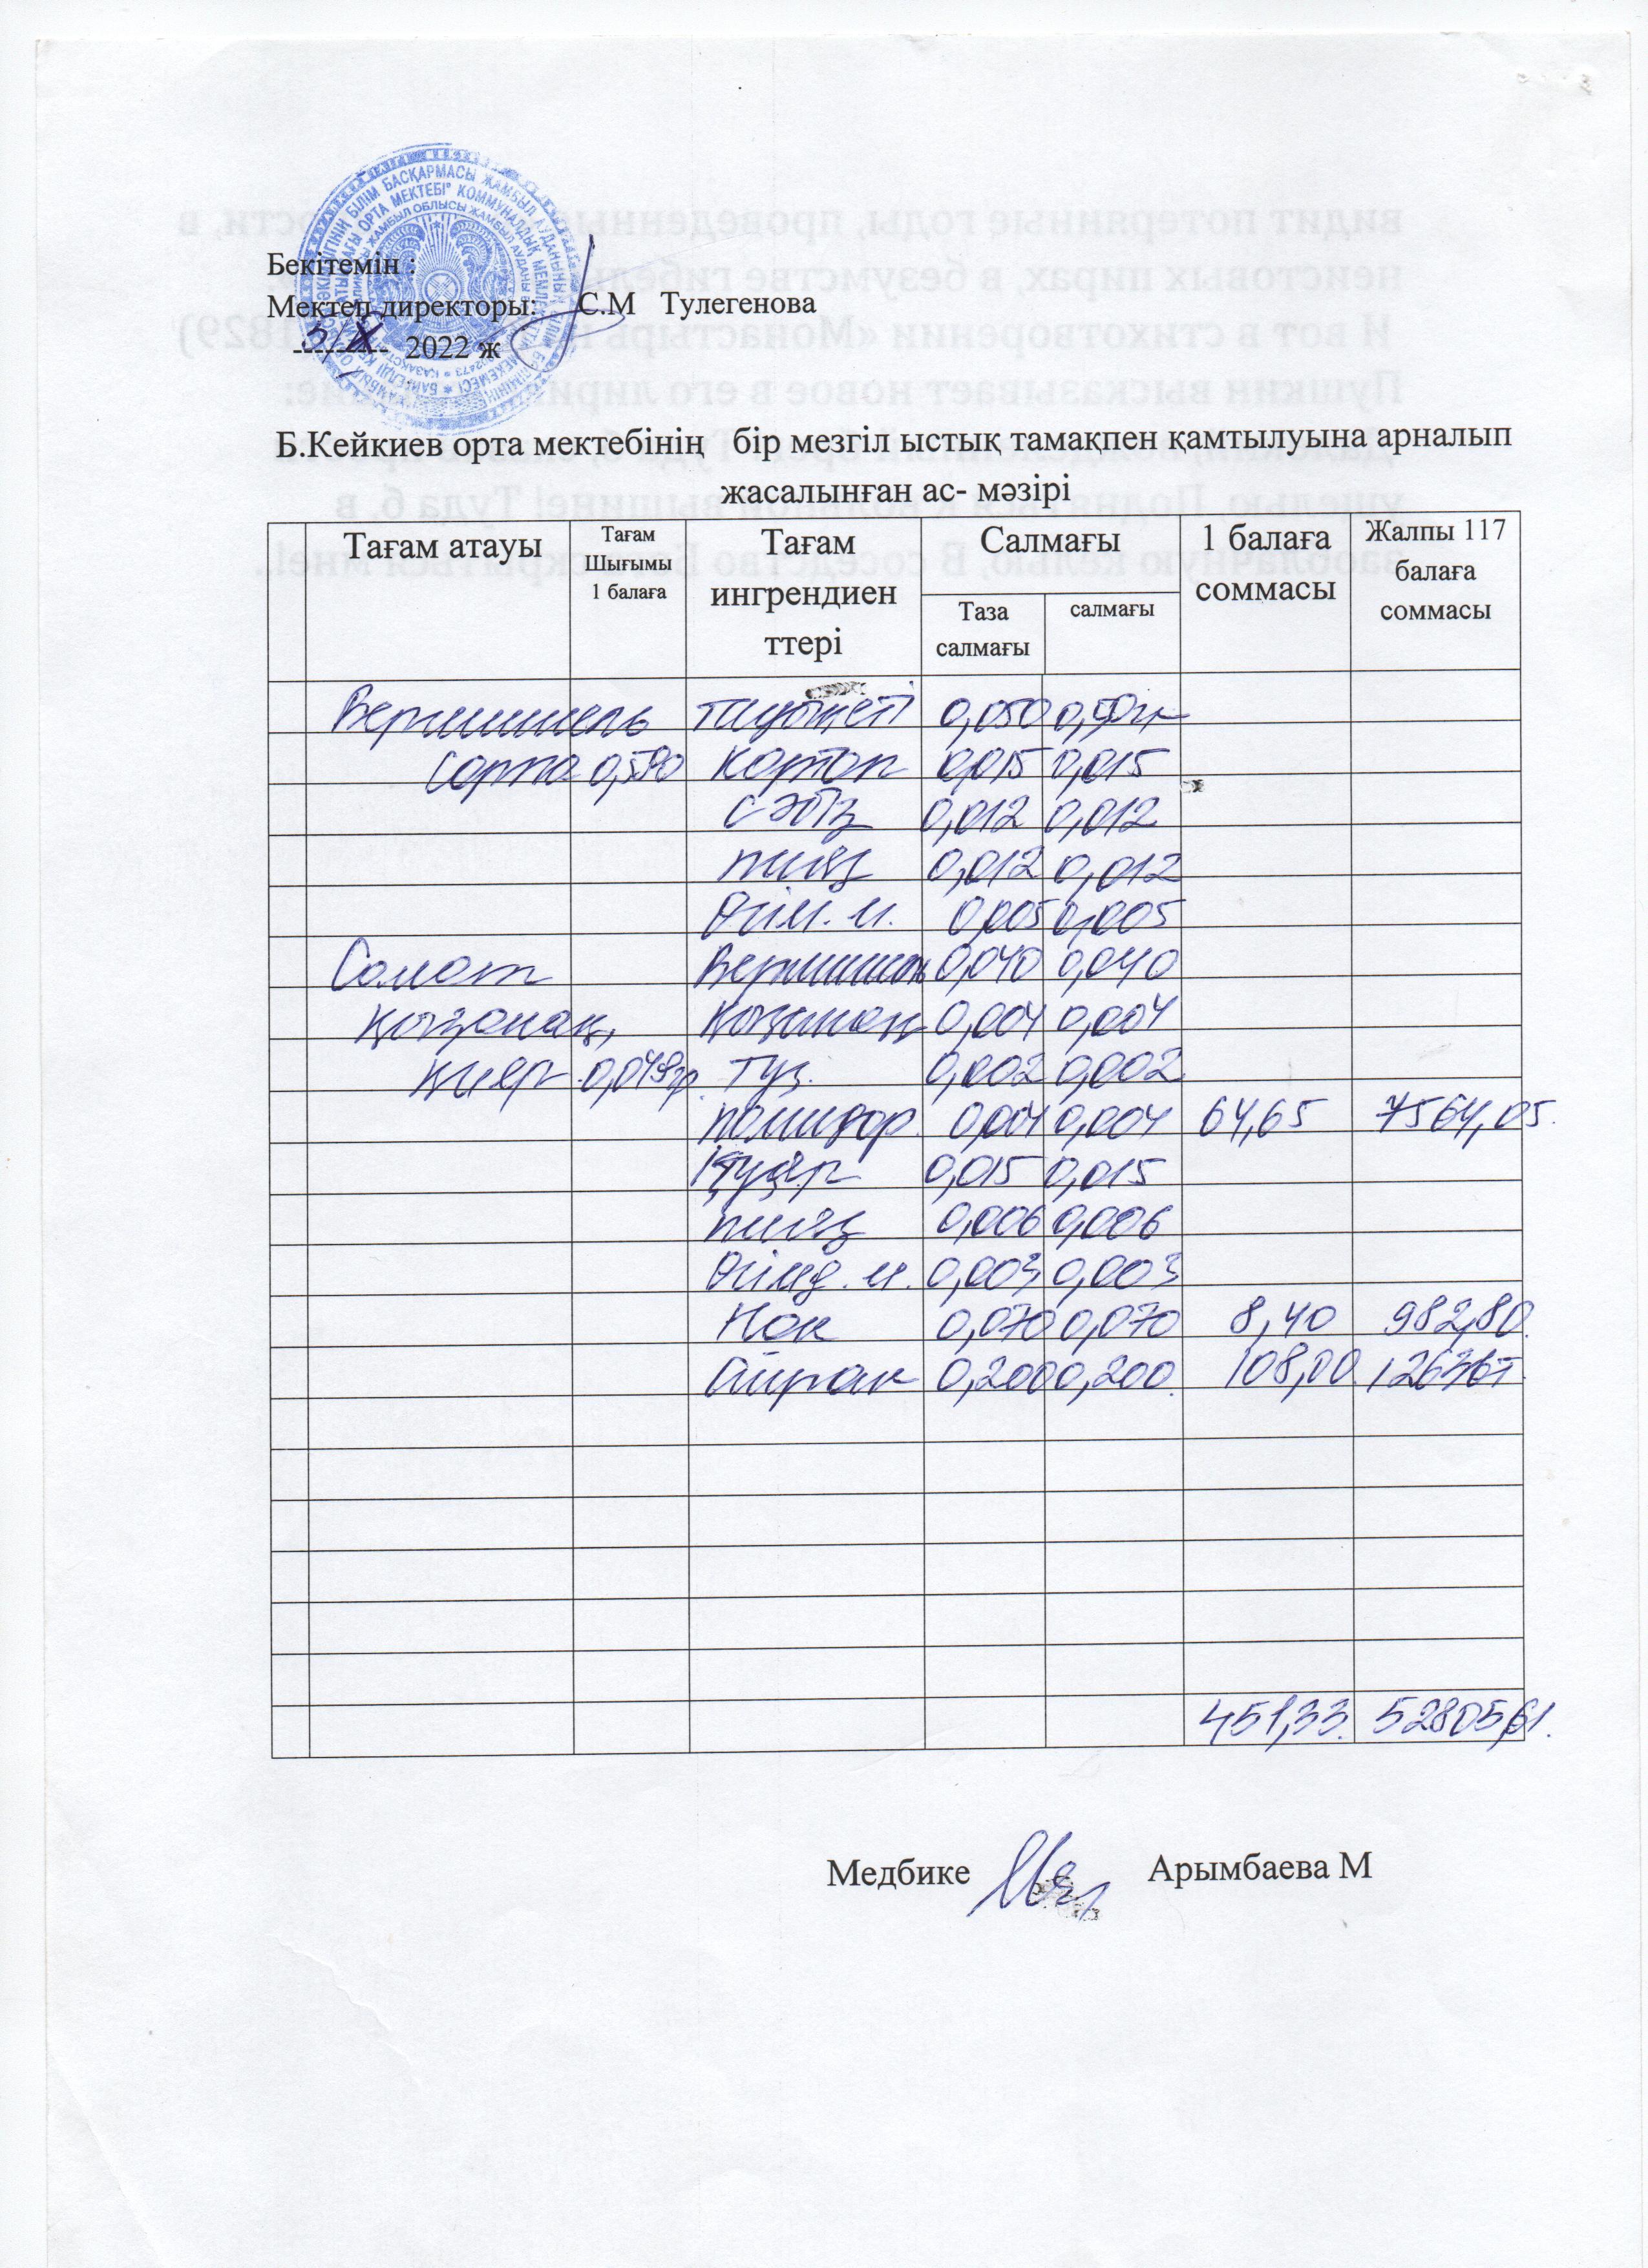 Бекітемін :
Мектеп директоры: С.М Тулегенова
5/X 2022 ж
Б.Кейкиев орта мектебінің бір мезгіл ыстық тамақпен қамтылуына арналып
жасалынған ас- мәзірі
Тағам атауы Тағам Шығымы 1 балаға Тағам ингрендиен ттері Салмағы 1 балаға соммасы Жалпы 117 балаға соммасы
Таза салмағы салмағы
Вермишель 0,050
Сорпа 0,590 Картоп 0,015 0,015
сәбіз 0,012 0,012
пияз 0,012 0,012
Өсім. м. 0,005 0,005
Салат Вермишель 0,040 0,040
қызанақ, Қызанақ 0,004 0,004
қияр 0,049гр. тұз. 0,002 0,002
помидор. 0,004 0,004 64,65 7564,05.
0,015 0,015
пияз 0,006 0,006
Өсімд. м. 0,003 0,003
Нан 0,070 0,070 8,40 982,80.
Айран 0,200 0,200. 108,00.
451,33. 52805,61.
Медбике Арымбаева М